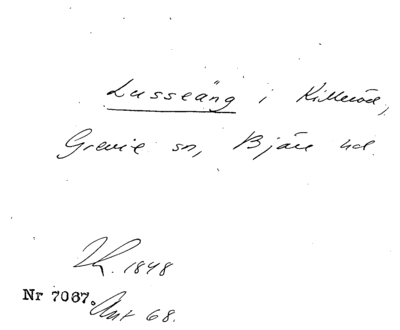 Lusseäng i Killeröd,
Grevie sn, Bjäre hd.
Kh. 1848
Nr 7067.
Ant 68.